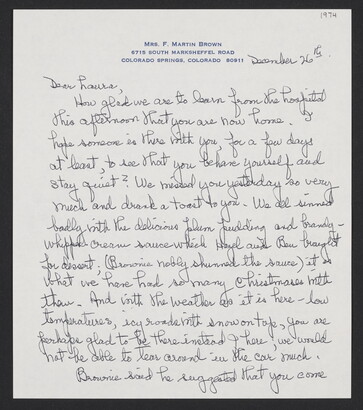 1974
MRS. F. MARTIN BROWN
6715 SOUTH MARKSHEFFEL ROAD
COLORADO SPRINGS, COLORADO 80911
December 26th
Dear Laura,
How glad we are to learn from the hospital
this afternoon that you are now home. I
hope someone is there with you for a few days
at least, to see that you behave yourself and
stay quiet? We missed you yesterday so very
much and drank a toast to you. We all sinned
badly with the delicious plum pudding and brandy-
whipped cream sauce which Hazel and Ben brought
for desert. (Brownie nobly shunned the sauce) it is
what we have had so many Christmases with
them. And with the weather as it is here - low
temperatures, icy roads with snow on top, you are
perhaps glad to be there instead of here, we would
not be able to tear around in the car much.
Brownie said he suggested that you come